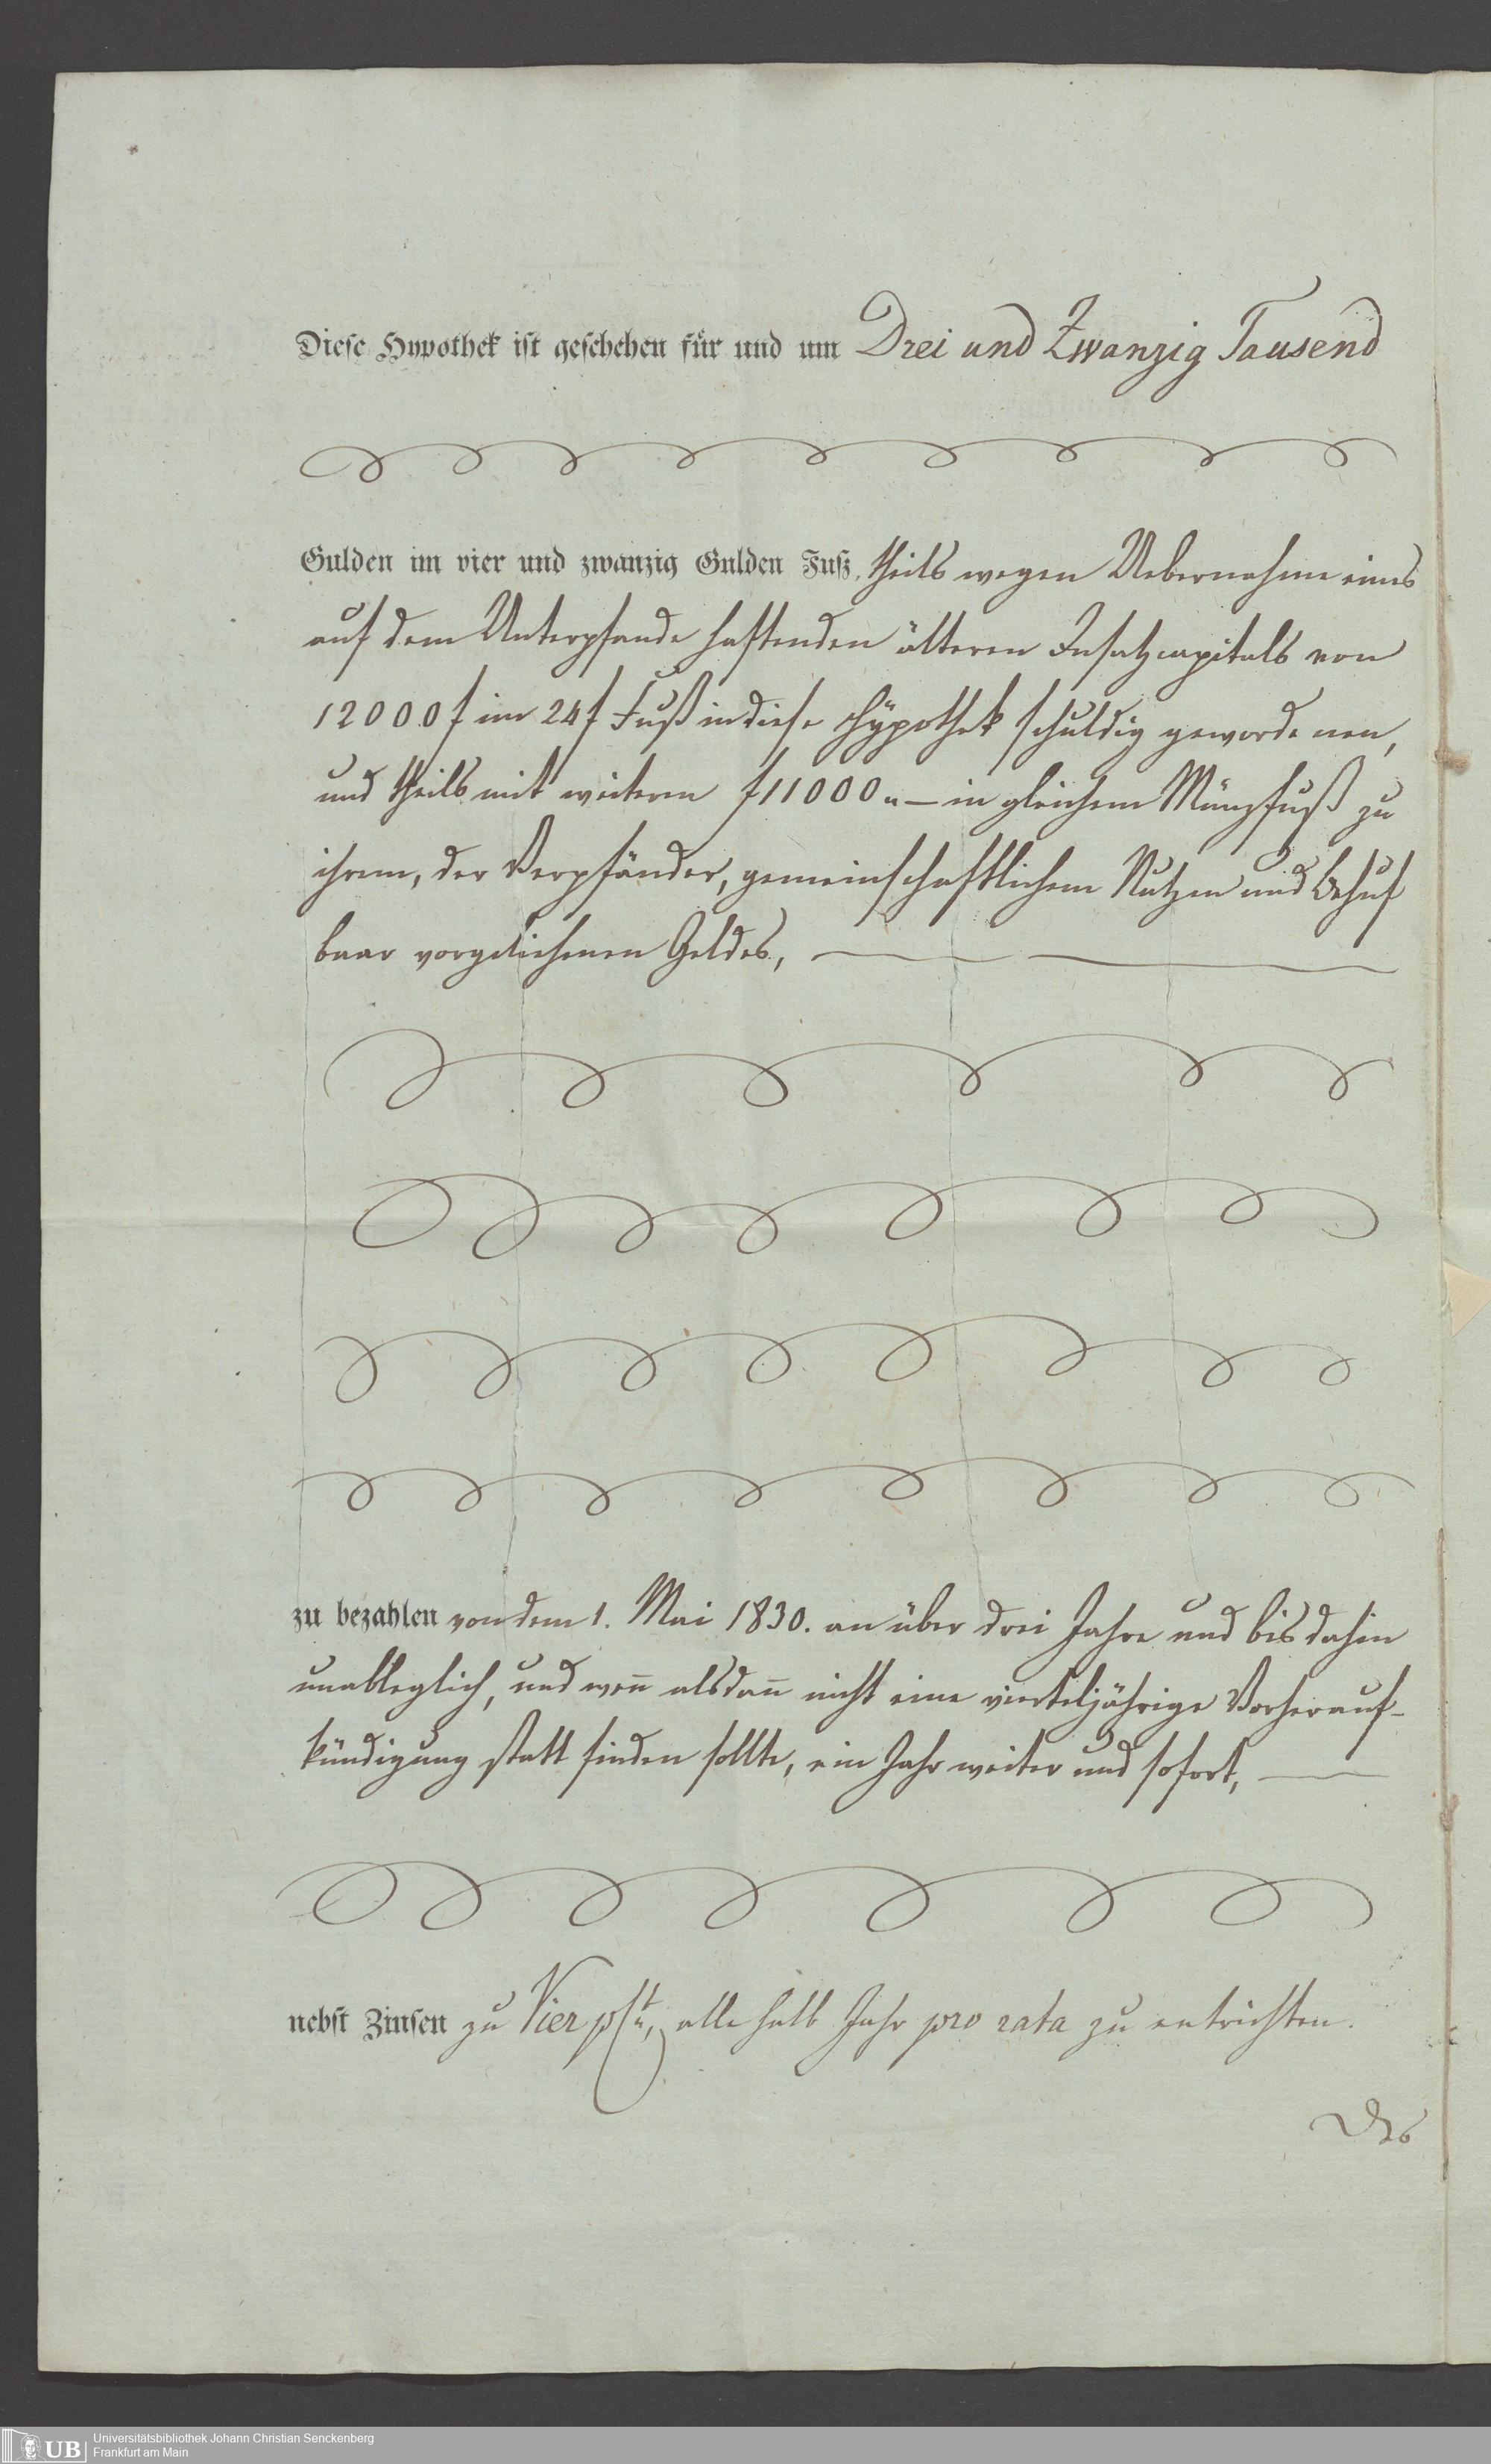 Diese Hypothek ist geschehen für und um Drei und Zwanzig Tausend
Gulden im vier und zwanzig Gulden Fuß, theils wegen Uebernahme eines
auf dem Unterpfande haftenden älteren Insatzcapitals von
12000 f im 24 f Fuß in diese Hypothek schuldig gewordenen,
und theils mit weiteren f 11000 „ — in gleichem Münzfuß zu
ihrem, der Verpfänder, gemeinschaftlichem Nutzen und Behuf
baar vorgeliehenen Geldes,
zu bezahlen von dem 1. Mai 1830. an über drei Jahre und bis dahin
unableglich, und wen̄ alsdan̄ nicht eine vierteljährige Vorherauf-
kündigung statt finden sollte, ein Jahr weiter und sofort,
nebst Zinsen zu Vier pCt, alle halb Jahr pro rata zu entrichten.
Des
UB
Universitätsbibliothek Johann Christian Senckenberg
Frankfurt am Main